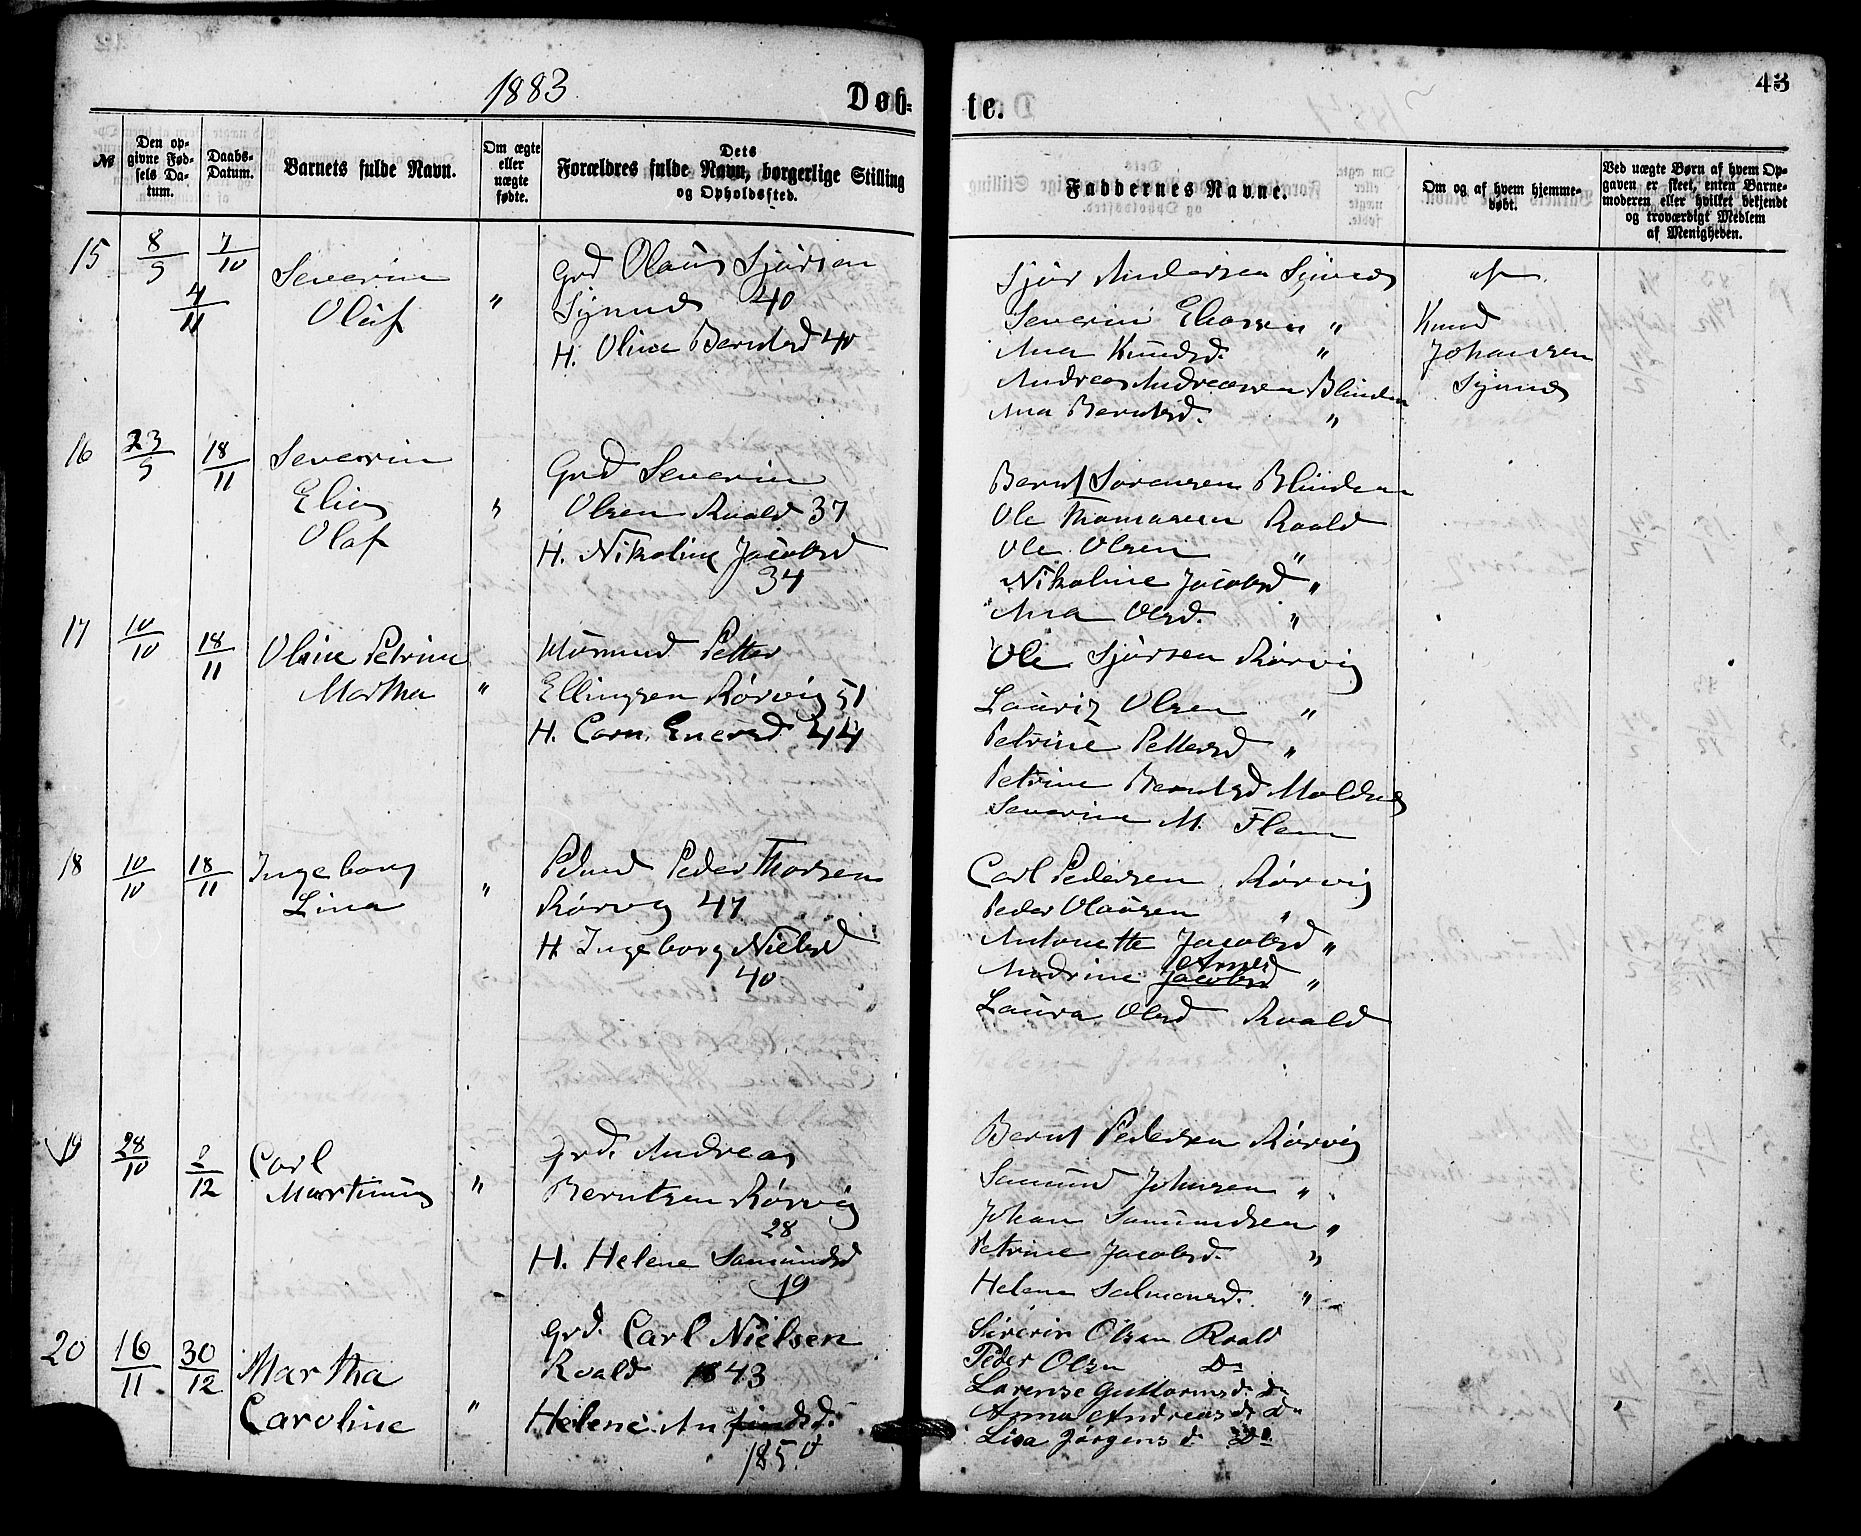 1883
Døb-
te.
43
№
Den op-
givne Fød-
sels Da-
tum.
Daabs-
Datum.
Barnets fulde Navn.
Om ægte
eller
uægte
fødte.
Dets
Forældres fulde Navn, borgerlige Stilling
og Opholdssted.
Faddernes Navne.
Om og af hvem hjemme-
døbt.
Ved uægte Børn af hvem Op-
gaven er skeet, enten Barne-
moderen eller hvilket bekjendt
og troværdigt Medlem
af Menigheden.
15
8/9
7/10
4/11
Severin
Olaf
"
Grd Olaus Sjursen
Synnes 40
H. Oline Berntsd 40
Sjur Andersen Synnes
Severin Eliassen "
Ana Knudsd. "
Andreas Andreassen Blindem
Ana Berntsd. "
af
Knud
Johansen
Synnes
16
23/9
18/11
Severin
Elias
Olaf
"
Grd Severin
Olsen Roald 37
H. Nikoline Jacobsd
34
Bernt Sorensen Blindem
Ole Thomassen Roald
Ole Olsen "
Nikoline Jacobsd "
Ana Olsd. "
17
10/10
18/11
Oline Petrine
Martha
"
Petter
Ellingsen Rørvig 51
H. Corn. Enersd 44
Ole Sjursen Rørvig
Lauriz Olsen "
Petrine Pettersd "
Petrine Berntsd Moldnes
Severine M. Flem
18
10/10
18/11
Ingeborg
Lina
"
Peder Thorsen
Rørvg 47
H. Ingeborg Nielsd
40
Carl Pedersen Rørvig
Peder Olausen "
Antonette Jacobsd "
Andrine Jacobsd "
Laura Olsd Roald
19
28/10
2/12
Carl
Martinus
"
Grd. Andreas
Berntsen Rørvig
28
H. Helene Samundsd
19
Bernt Pedersen Rørvig
Samund Johnsen "
Johan Samundsen "
Petrine Jacobsd. "
Helene Salmonsd. "
20
16/11
30/12
Martha
Caroline
"
Grd. Carl Nielsen
Roald 1843
Helene Anfindsd.
1850
Severin Olsen Roald
Peder Olsen Do
Lorense Guttormsd. Do
Anna Andreasd. Do
Lisa Jørgensd. Do